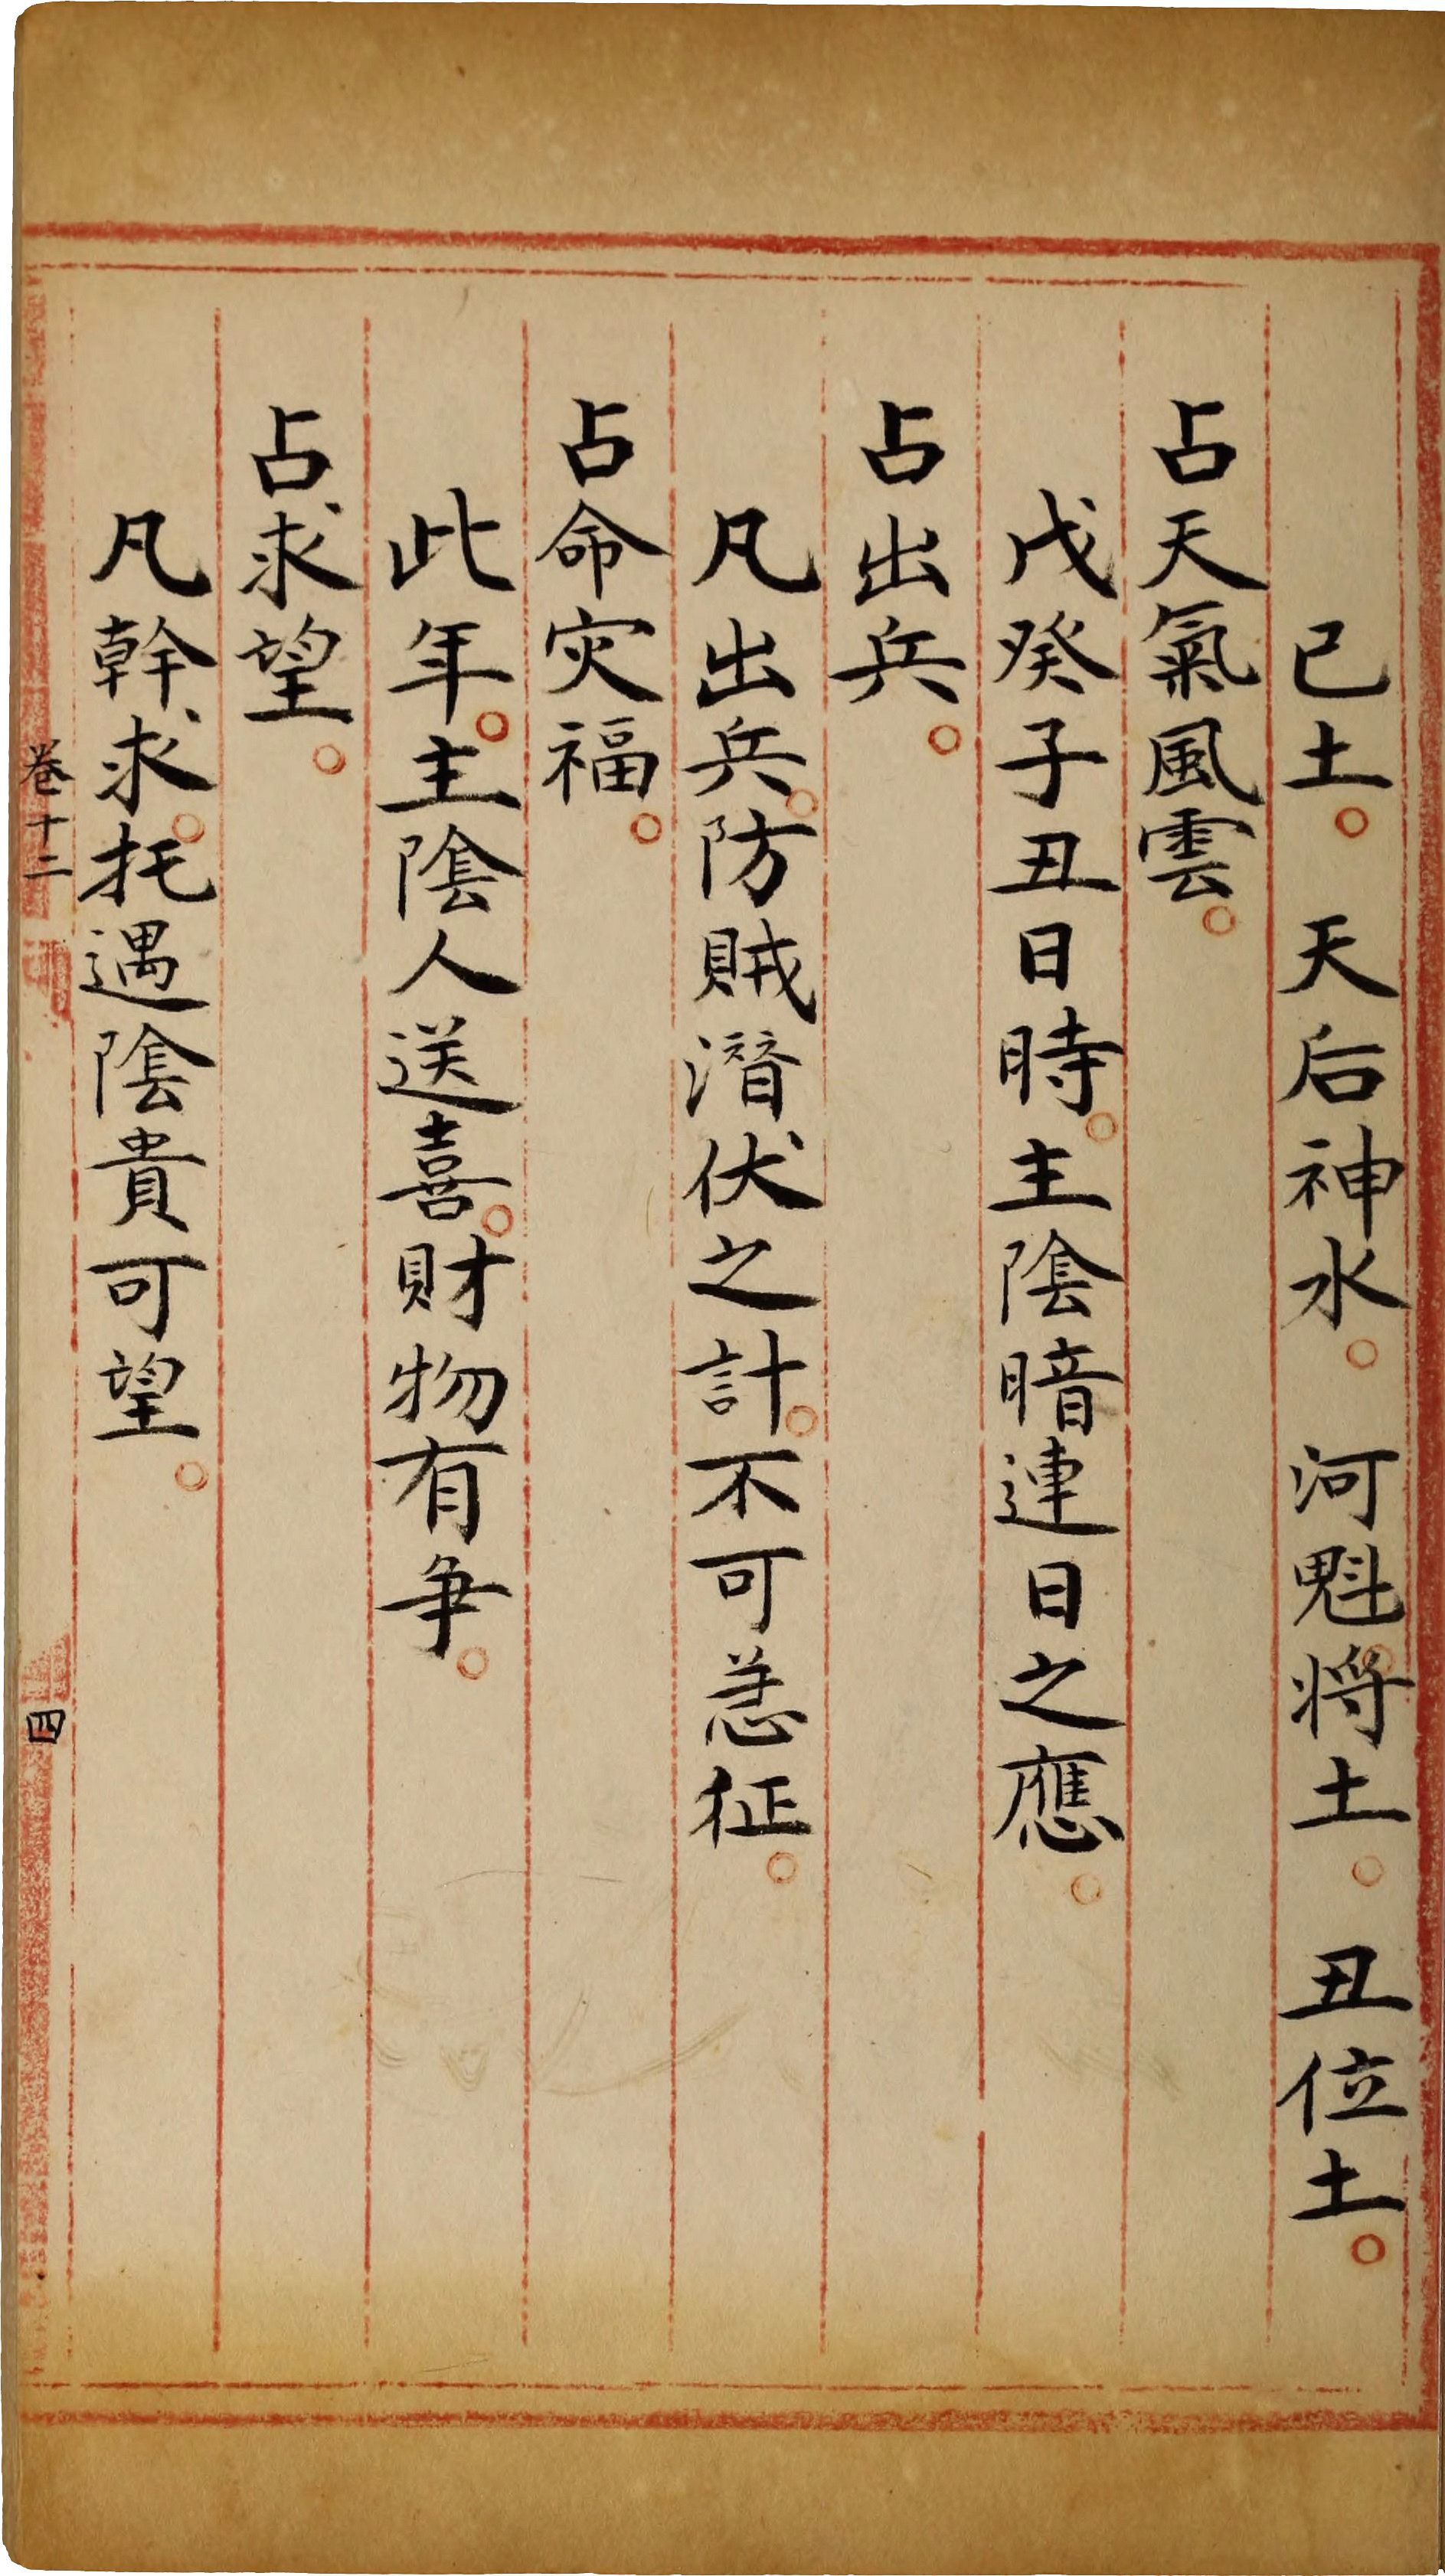 己土。天后神水。河魁將土。丑位土。
占天氣風雲。
戊癸子丑日時。主陰暗連日之應。
占出兵。
凡出兵。防賊潛伏之計。不可急征。
占命灾福。
此年。主陰人送喜。財物有爭。
占求望。
凡幹求。托遇陰貴可望。
卷十二
四